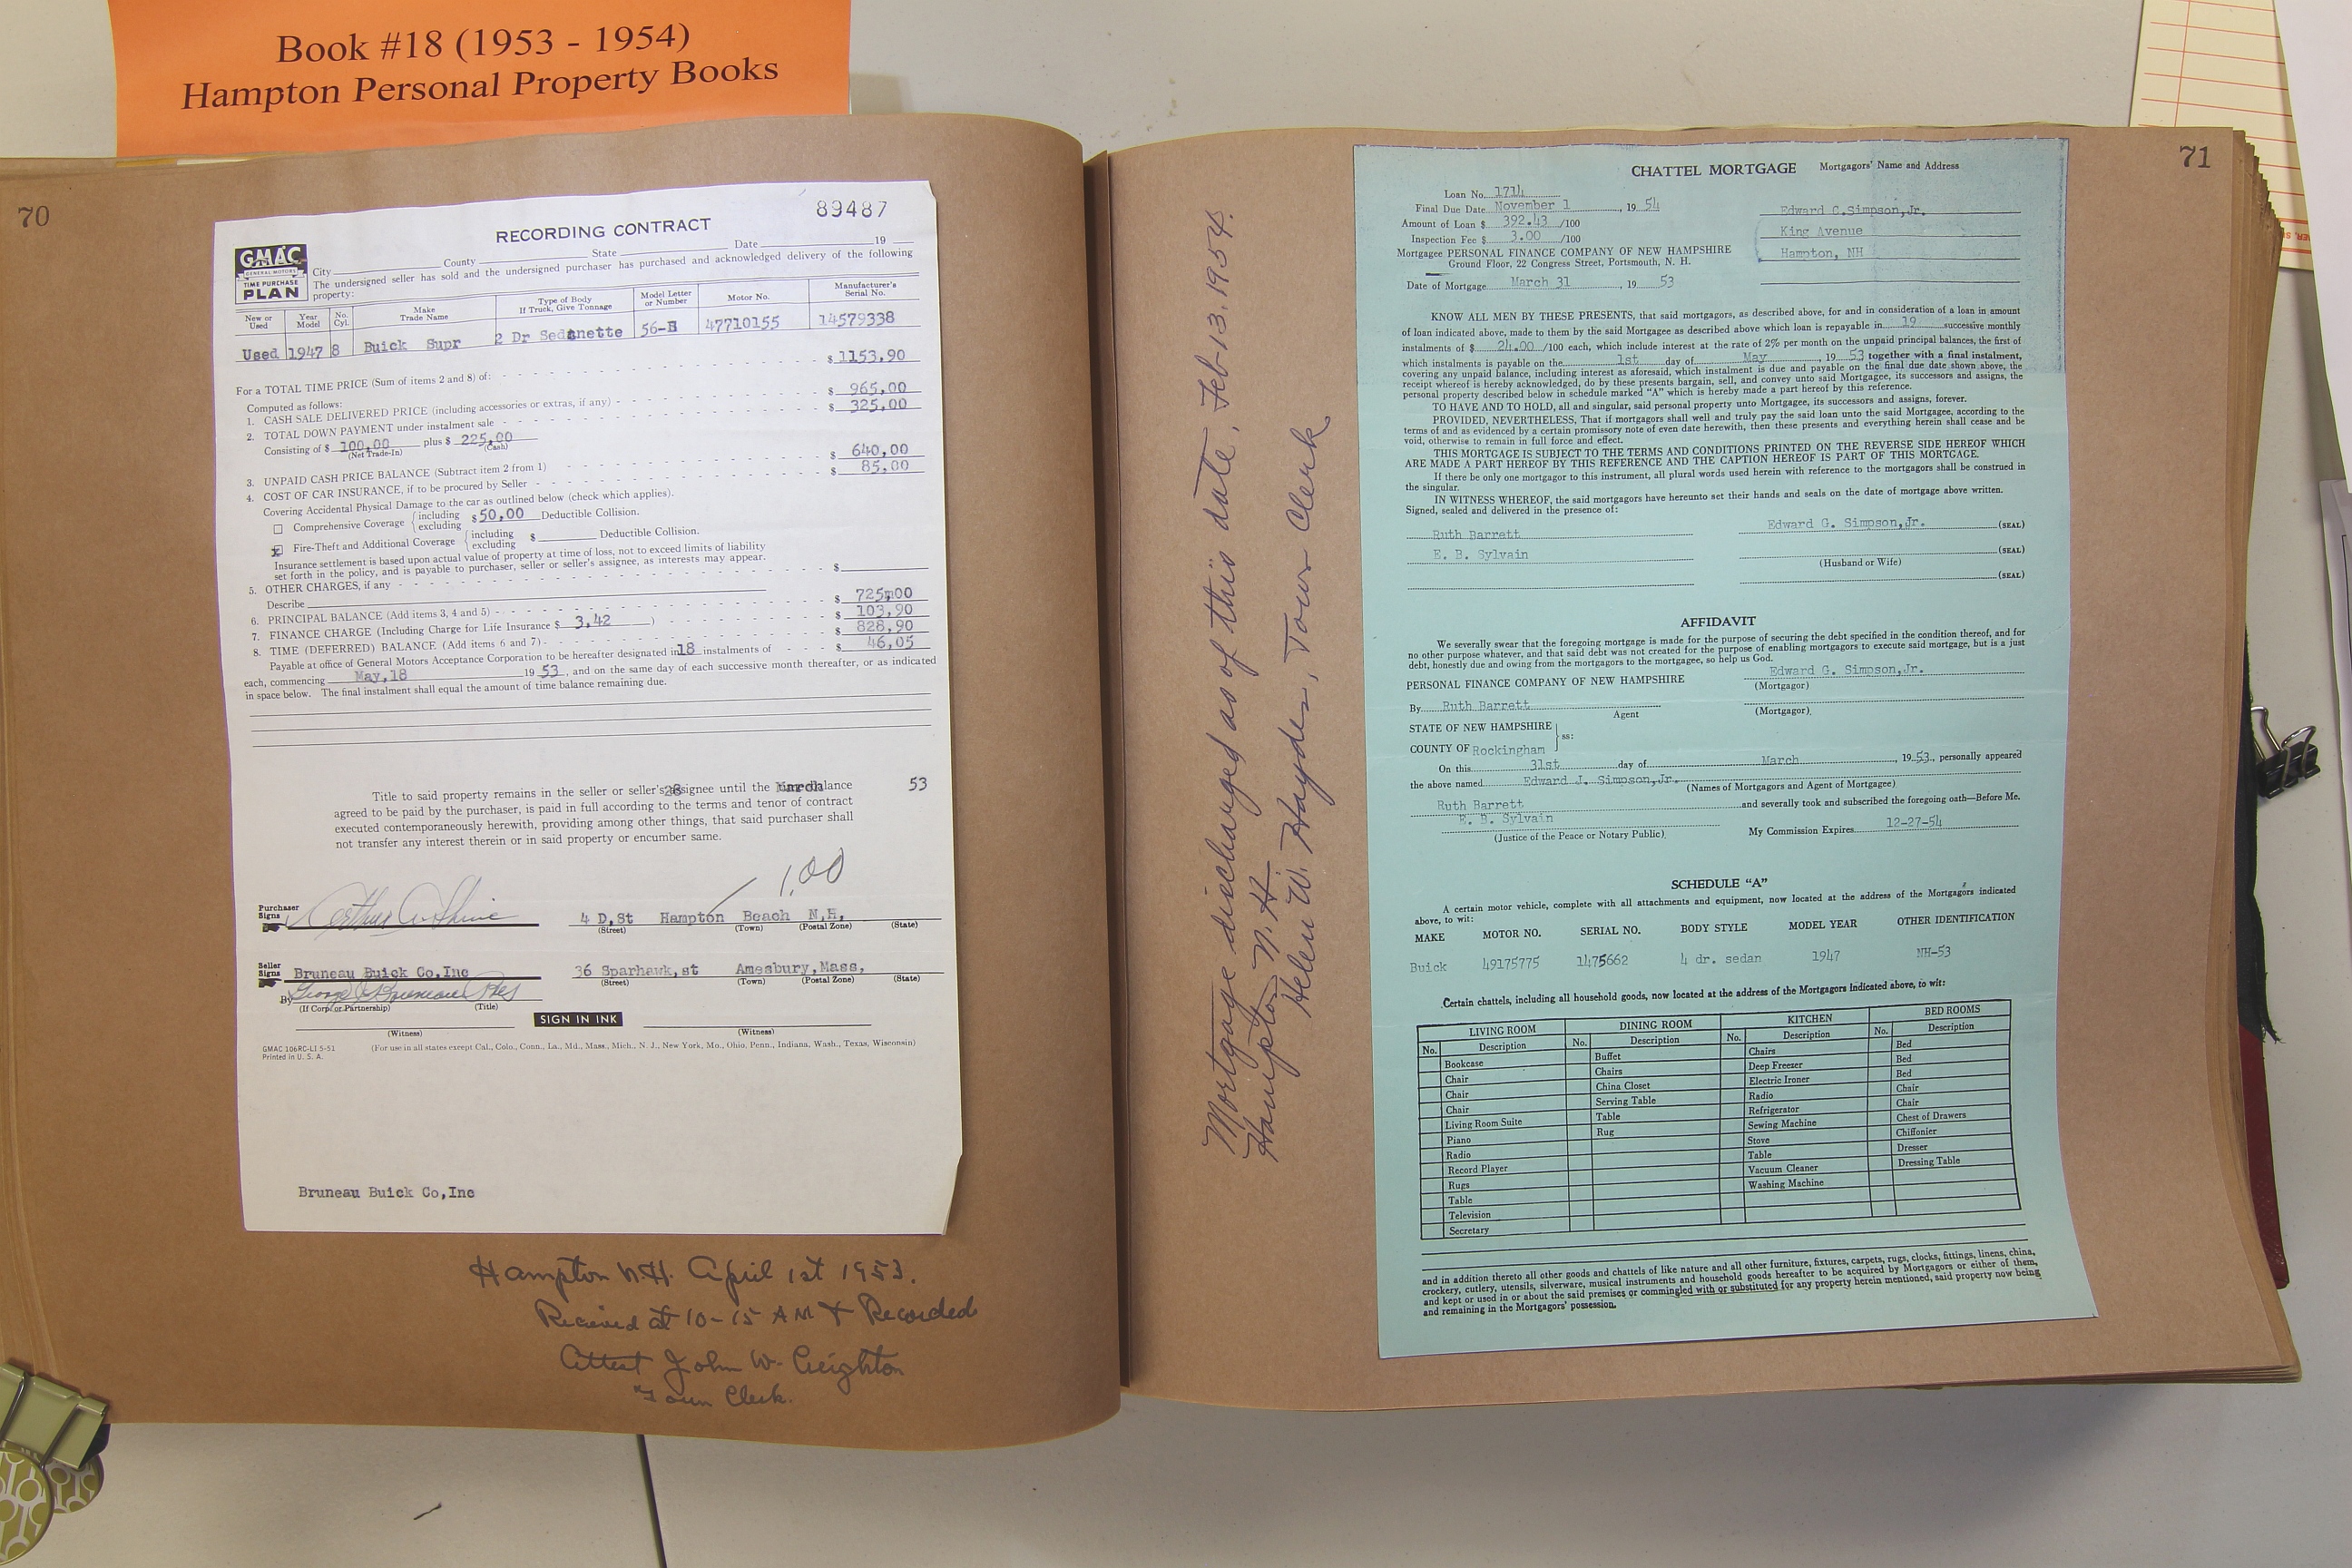 Book #18 (1953 - 1954)
Hampton Personal Property Books
70
89487
RECORDING CONTRACT
GMAC
GENERAL MOTORS
TIME PURCHASE
PLAN
City County State Date 19
The undersigned seller has sold and the undersigned purchaser has purchased and acknowledged delivery of the following
property:
New or Used Year Model No. Cyl. Make Trade Name Type of Body If Truck, Give Tonnage Model Letter or Number Motor No. Manufacturer's Serial No.
Used 1947 8 Buick Supr 2 Dr Sedanette 56-S 47710155 14579338
For a TOTAL TIME PRICE (Sum of items 2 and 8) of: $ 1153.90
Computed as follows:
1. CASH SALE DELIVERED PRICE (including accessories or extras, if any) $ 965.00
2. TOTAL DOWN PAYMENT under instalment sale $ 325.00
Consisting of $ 100.00 plus $ 225.00
(Net Trade-In) (Cash)
3. UNPAID CASH PRICE BALANCE (Subtract item 2 from 1) $ 640.00
4. COST OF CAR INSURANCE, if to be procured by Seller $ 85.00
Covering Accidental Physical Damage to the car as outlined below (check which applies).
Comprehensive Coverage { including excluding $50.00 Deductible Collision.
Fire-Theft and Additional Coverage { including excluding $ Deductible Collision.
Insurance settlement is based upon actual value of property at time of loss, not to exceed limits of liability
set forth in the policy, and is payable to purchaser, seller or seller's assignee, as interests may appear.
5. OTHER CHARGES, if any $
Describe
6. PRINCIPAL BALANCE (Add items 3, 4 and 5) $ 725.00
7. FINANCE CHARGE (Including Charge for Life Insurance $ 3.42 ) $ 103.90
8. TIME (DEFERRED) BALANCE (Add items 6 and 7) $ 828.90
Payable at office of General Motors Acceptance Corporation to be hereafter designated in 18 instalments of $ 46.05
each, commencing May,18 19 53, and on the same day of each successive month thereafter, or as indicated
in space below. The final instalment shall equal the amount of time balance remaining due.
28 March 53
Title to said property remains in the seller or seller's assignee until the time balance
agreed to be paid by the purchaser, is paid in full according to the terms and tenor of contract
executed contemporaneously herewith, providing among other things, that said purchaser shall
not transfer any interest therein or in said property or encumber same.
1.00
Purchaser Signs 4 D.St Hampton Beach N.H.
(Street) (Town) (Postal Zone) (State)
Seller Signs Bruneau Buick Co,Inc 36 Sparhawk,st Amesbury,Mass,
(Street) (Town) (Postal Zone) (State)
By George J Bruneau Pres
(If Corp. or Partnership) (Title)
SIGN IN INK
(Witness) (Witness)
GMAC 106RC-LI 5-51
Printed in U. S. A.
(For use in all states except Cal., Colo., Conn., La., Md., Mass., Mich., N. J., New York, Mo., Ohio, Penn., Indiana, Wash., Texas, Wisconsin)
Bruneau Buick Co,Inc
Hampton N.H. April 1st 1953.
Recieved at 10-15 AM & Recorded
Attest John W. Creighton
Town Clerk.
71
Mortgage discharged as of this date, Feb 13, 1954.
Hampton N.H.
Helen W. Hayden, Town Clerk
CHATTEL MORTGAGE Mortgagors' Name and Address
Loan No. 1714
Final Due Date November 1, 19 54
Amount of Loan $ 392.43 /100
Inspection Fee $ 3.00 /100
Mortgagee PERSONAL FINANCE COMPANY OF NEW HAMPSHIRE
Ground Floor, 22 Congress Street, Portsmouth, N. H.
Date of Mortgage March 31, 19 53
Edward C.Simpson,Jr.
King Avenue
Hampton, NH
KNOW ALL MEN BY THESE PRESENTS, that said mortgagors, as described above, for and in consideration of a loan in amount
of loan indicated above, made to them by the said Mortgagee as described above which loan is repayable in 19 successive monthly
instalments of $ 24.00 /100 each, which include interest at the rate of 2% per month on the unpaid principal balances, the first of
which instalments is payable on the 1st day of May, 19 53 together with a final instalment,
covering any unpaid balance, including interest as aforesaid, which instalment is due and payable on the final due date shown above, the
receipt whereof is hereby acknowledged, do by these presents bargain, sell, and convey unto said Mortgagee, its successors and assigns, the
personal property described below in schedule marked "A" which is hereby made a part hereof by this reference.
TO HAVE AND TO HOLD, all and singular, said personal property unto Mortgagee, its successors and assigns, forever.
PROVIDED, NEVERTHELESS, That if mortgagors shall well and truly pay the said loan unto the said Mortgagee, according to the
terms of and as evidenced by a certain promissory note of even date herewith, then these presents and everything herein shall cease and be
void, otherwise to remain in full force and effect.
THIS MORTGAGE IS SUBJECT TO THE TERMS AND CONDITIONS PRINTED ON THE REVERSE SIDE HEREOF WHICH
ARE MADE A PART HEREOF BY THIS REFERENCE AND THE CAPTION HEREOF IS PART OF THIS MORTGAGE.
If there be only one mortgagor to this instrument, all plural words used herein with reference to the mortgagors shall be construed in
the singular.
IN WITNESS WHEREOF, the said mortgagors have hereunto set their hands and seals on the date of mortgage above written.
Signed, sealed and delivered in the presence of:
Ruth Barrett Edward G. Simpson,Jr. (SEAL)
E. B. Sylvain (SEAL)
(Husband or Wife)
(SEAL)
AFFIDAVIT
We severally swear that the foregoing mortgage is made for the purpose of securing the debt specified in the condition thereof, and for
no other purpose whatever, and that said debt was not created for the purpose of enabling mortgagors to execute said mortgage, but is a just
debt, honestly due and owing from the mortgagors to the mortgagee, so help us God.
PERSONAL FINANCE COMPANY OF NEW HAMPSHIRE Edward G. Simpson,Jr.
(Mortgagor)
By Ruth Barrett
Agent (Mortgagor)
STATE OF NEW HAMPSHIRE } ss:
COUNTY OF Rockingham
On this 31st day of March, 19 53, personally appeared
the above named Edward J. Simpson,Jr.
(Names of Mortgagors and Agent of Mortgagee)
Ruth Barrett and severally took and subscribed the foregoing oath—Before Me.
E. B. Sylvain
(Justice of the Peace or Notary Public) My Commission Expires 12-27-54
SCHEDULE "A"
A certain motor vehicle, complete with all attachments and equipment, now located at the address of the Mortgagors indicated
above, to wit:
MAKE MOTOR NO. SERIAL NO. BODY STYLE MODEL YEAR OTHER IDENTIFICATION
Buick 49175775 1475662 4 dr. sedan 1947 NH-53
Certain chattels, including all household goods, now located at the address of the Mortgagors indicated above, to wit:
LIVING ROOM DINING ROOM KITCHEN BED ROOMS
No. Description No. Description No. Description No. Description
Bookcase Buffet Chairs Bed
Chair Chairs Deep Freezer Bed
Chair China Closet Electric Ironer Bed
Chair Serving Table Radio Chair
Living Room Suite Table Refrigerator Chair
Piano Rug Sewing Machine Chest of Drawers
Radio Stove Chiffonier
Record Player Table Dresser
Rugs Vacuum Cleaner Dressing Table
Table Washing Machine
Television
Secretary
and in addition thereto all other goods and chattels of like nature and all other furniture, fixtures, carpets, rugs, clocks, fittings, linens, china,
crockery, cutlery, utensils, silverware, musical instruments and household goods hereafter to be acquired by Mortgagors or either of them,
and kept or used in or about the said premises or commingled with or substituted for any property herein mentioned, said property now being
and remaining in the Mortgagors' possession.